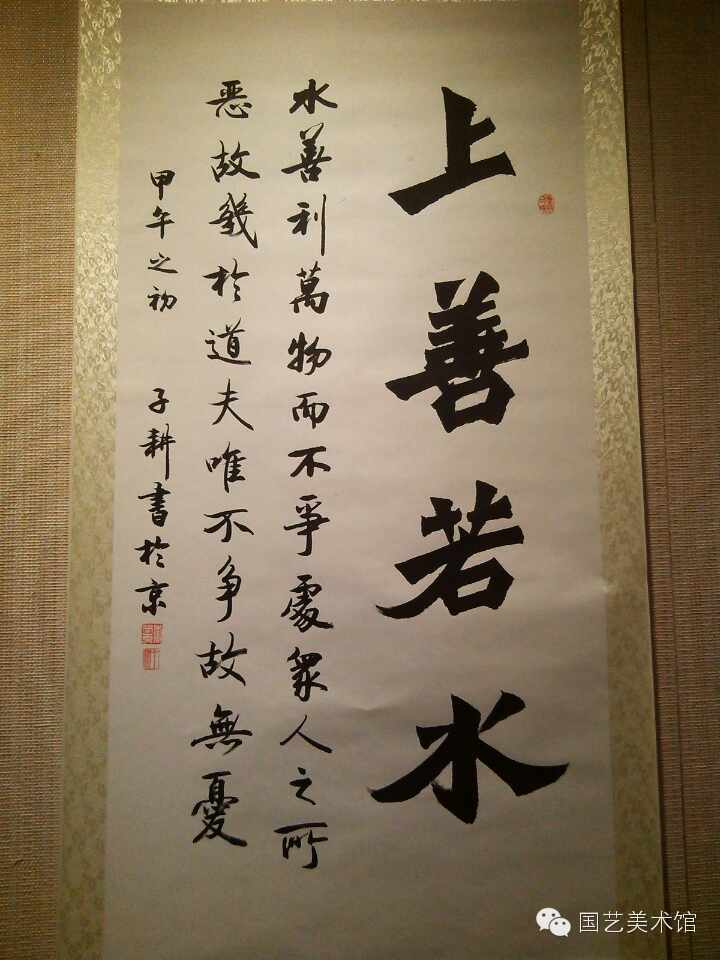 上善若水
水善利萬物而不爭處衆人之所
惡故幾於道夫唯不争故無憂
甲午之初 子耕書於京
国艺美术馆